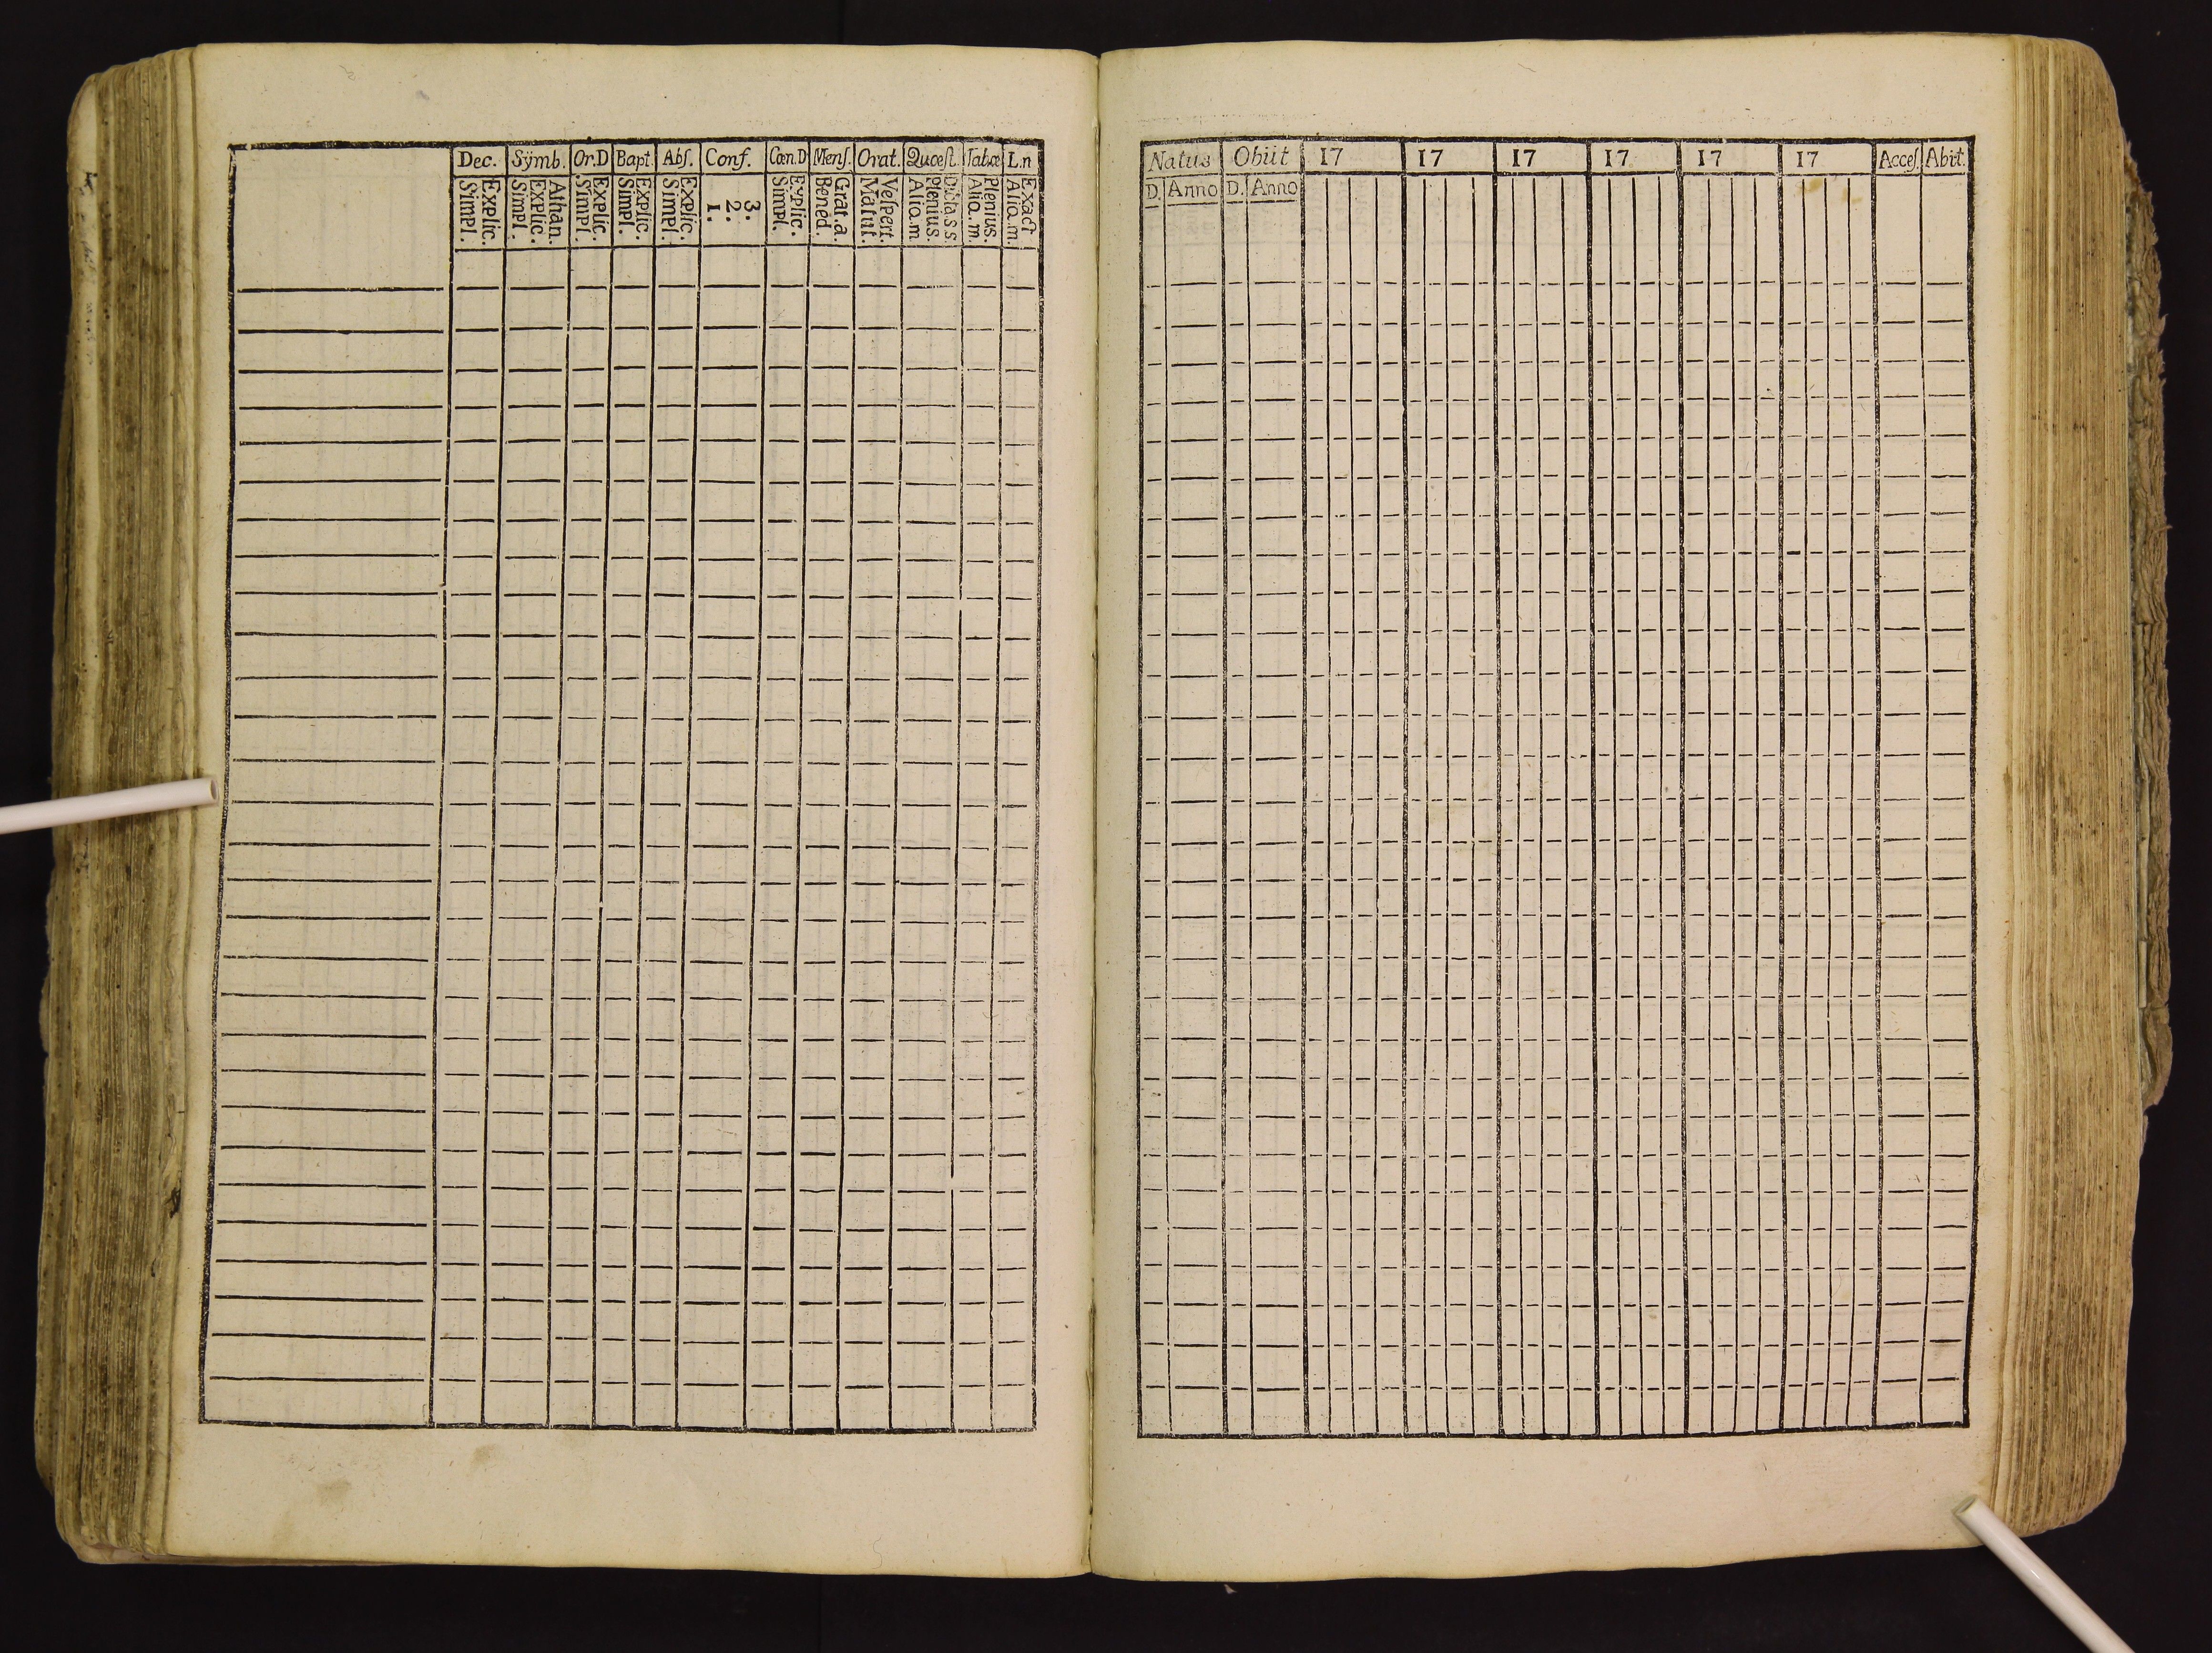 Dec. Sÿmb. Or.D Bapt. Abſ. Conf. Cœn.D Menſ. Orat. Quœſt. Tabœ L.n
Simpl. Explic. Simpl. Explic. Athan. Simpl. Explic. Simpl. Explic. Simpl. Explic. 1. 2. 3. Simpl. Explic. Bened. Grat.a. Matut. Veſpert. Aliq.m Plenius. Dicta S S. Aliq.m. Plenius. Aliq.m. Exact
Natus Obiit 17 17 17 17 17 17 Acceſ. Abit.
D. Anno D. Anno